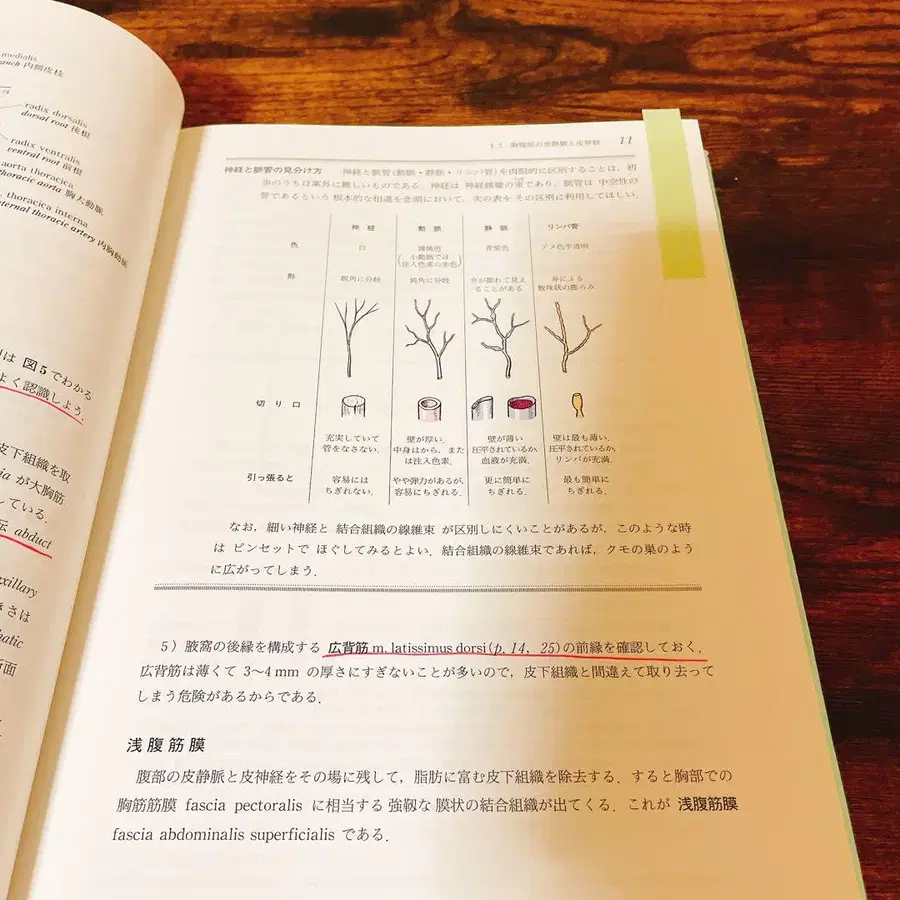 medialis
内側皮枝
radix dorsalis
dorsal root 後根
radix ventralis
ventral root 前根
aorta thoracica
thoracic aorta 胸大動脈
thoracica interna
internal thoracic artery 内胸動脈
は 図5 でわかる
よく認識しよう.
皮下組織を取
ia が大胸筋
している.
abduct
axillary
きさは
hatic
断面
§3 胸腹部の皮静脈と皮神経 11
神経と脈管の見分け方 神経と脈管(動脈・静脈・リンパ管)を肉眼的に区別することは, 初
歩のうちは案外に難しいものである. 神経は 神経線維の束であり, 脈管は 中空性の
管であるという 根本的な相違を念頭において, 次の表を その区別に利用してほしい.
神経 動脈 静脈 リンパ管
色 白 薄桃色 青紫色 アメ色半透明
(小動脈では
注入色素の赤色)
形 鋭角に分岐 鈍角に分岐 弁が膨れて見え 弁による
ることがある 数珠状の膨らみ
切り口
充実していて 壁が厚い. 壁が薄い 壁は最も薄い.
管をなさない. 中身はから, また 圧平されているか, 圧平されているか,
は注入色素. 血液が充満. リンパが充満.
引っ張ると 容易には やや弾力があるが, 更に簡単に 最も簡単に
ちぎれない. 容易にちぎれる. ちぎれる. ちぎれる.
なお, 細い神経と 結合組織の線維束 が区別しにくいことがあるが, このような時
は ピンセットで ほぐしてみるとよい. 結合組織の線維束であれば, クモの巣のよう
に広がってしまう.
5) 腋窩の後縁を構成する 広背筋 m. latissimus dorsi (p. 14, 25) の前縁を確認しておく.
広背筋は薄くて 3~4 mm の厚さにすぎないことが多いので, 皮下組織と間違えて取り去って
しまう危険があるからである.
浅腹筋膜
腹部の皮静脈と皮神経をその場に残して, 脂肪に富む皮下組織を除去する. すると胸部での
胸筋筋膜 fascia pectoralis に相当する 強靱な 膜状の結合組織が出てくる. これが 浅腹筋膜
fascia abdominalis superficialis である.